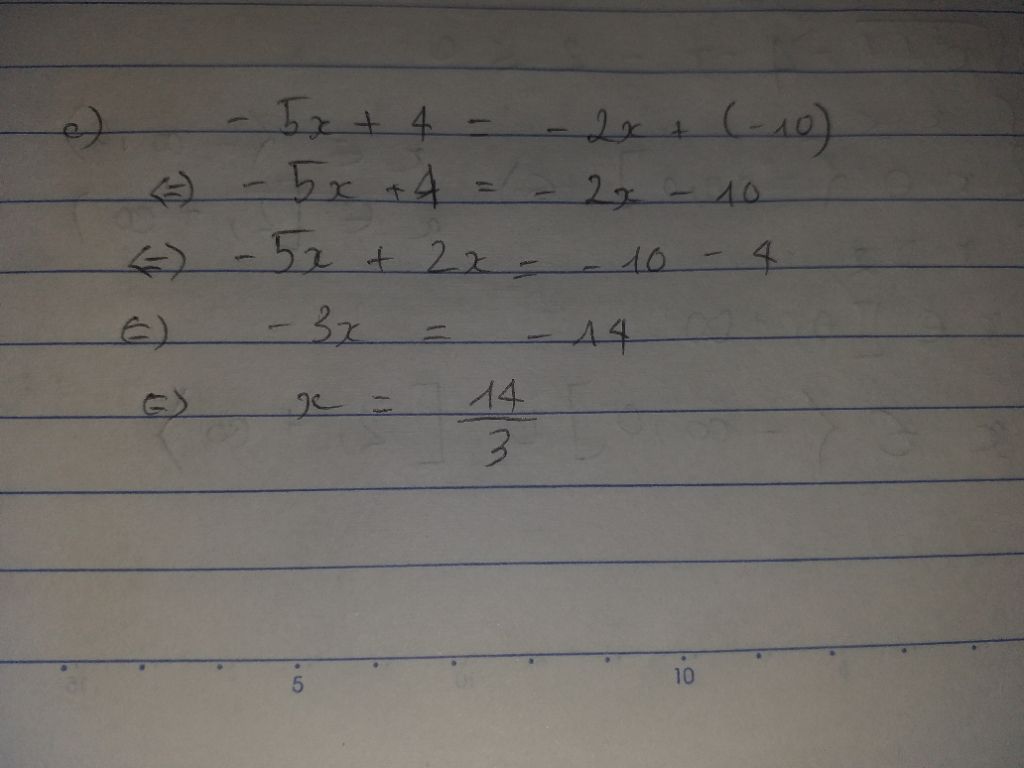 c) - 5x + 4 = - 2x + (-10)
<=> - 5x + 4 = - 2x - 10
<=> - 5x + 2x = - 10 - 4
<=> - 3x = - 14
<=> x = 14/3
5 10